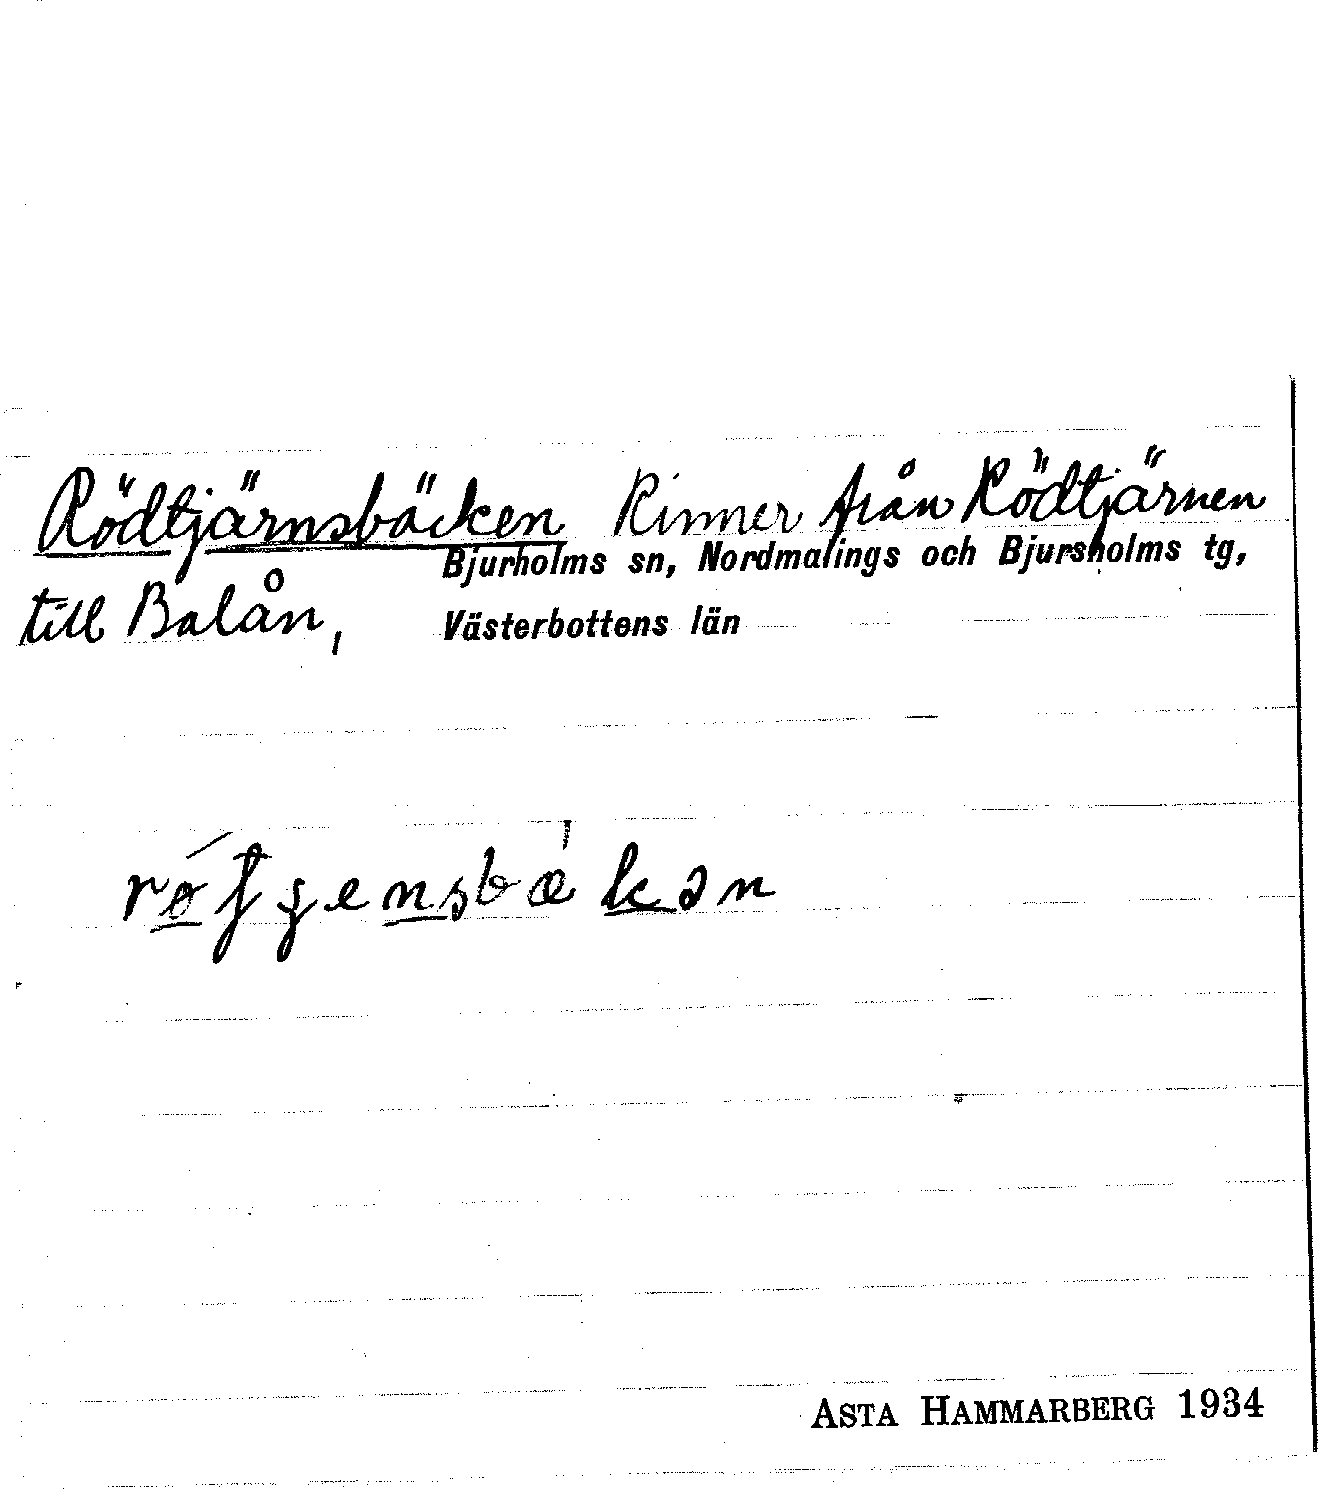 Rödtjärnsbäcken Rinner från Rödtjärnen
Bjurholms sn, Nordmalings och Bjursholms tg,
till Balån, Västerbottens län
ASTA HAMMARBERG 1934